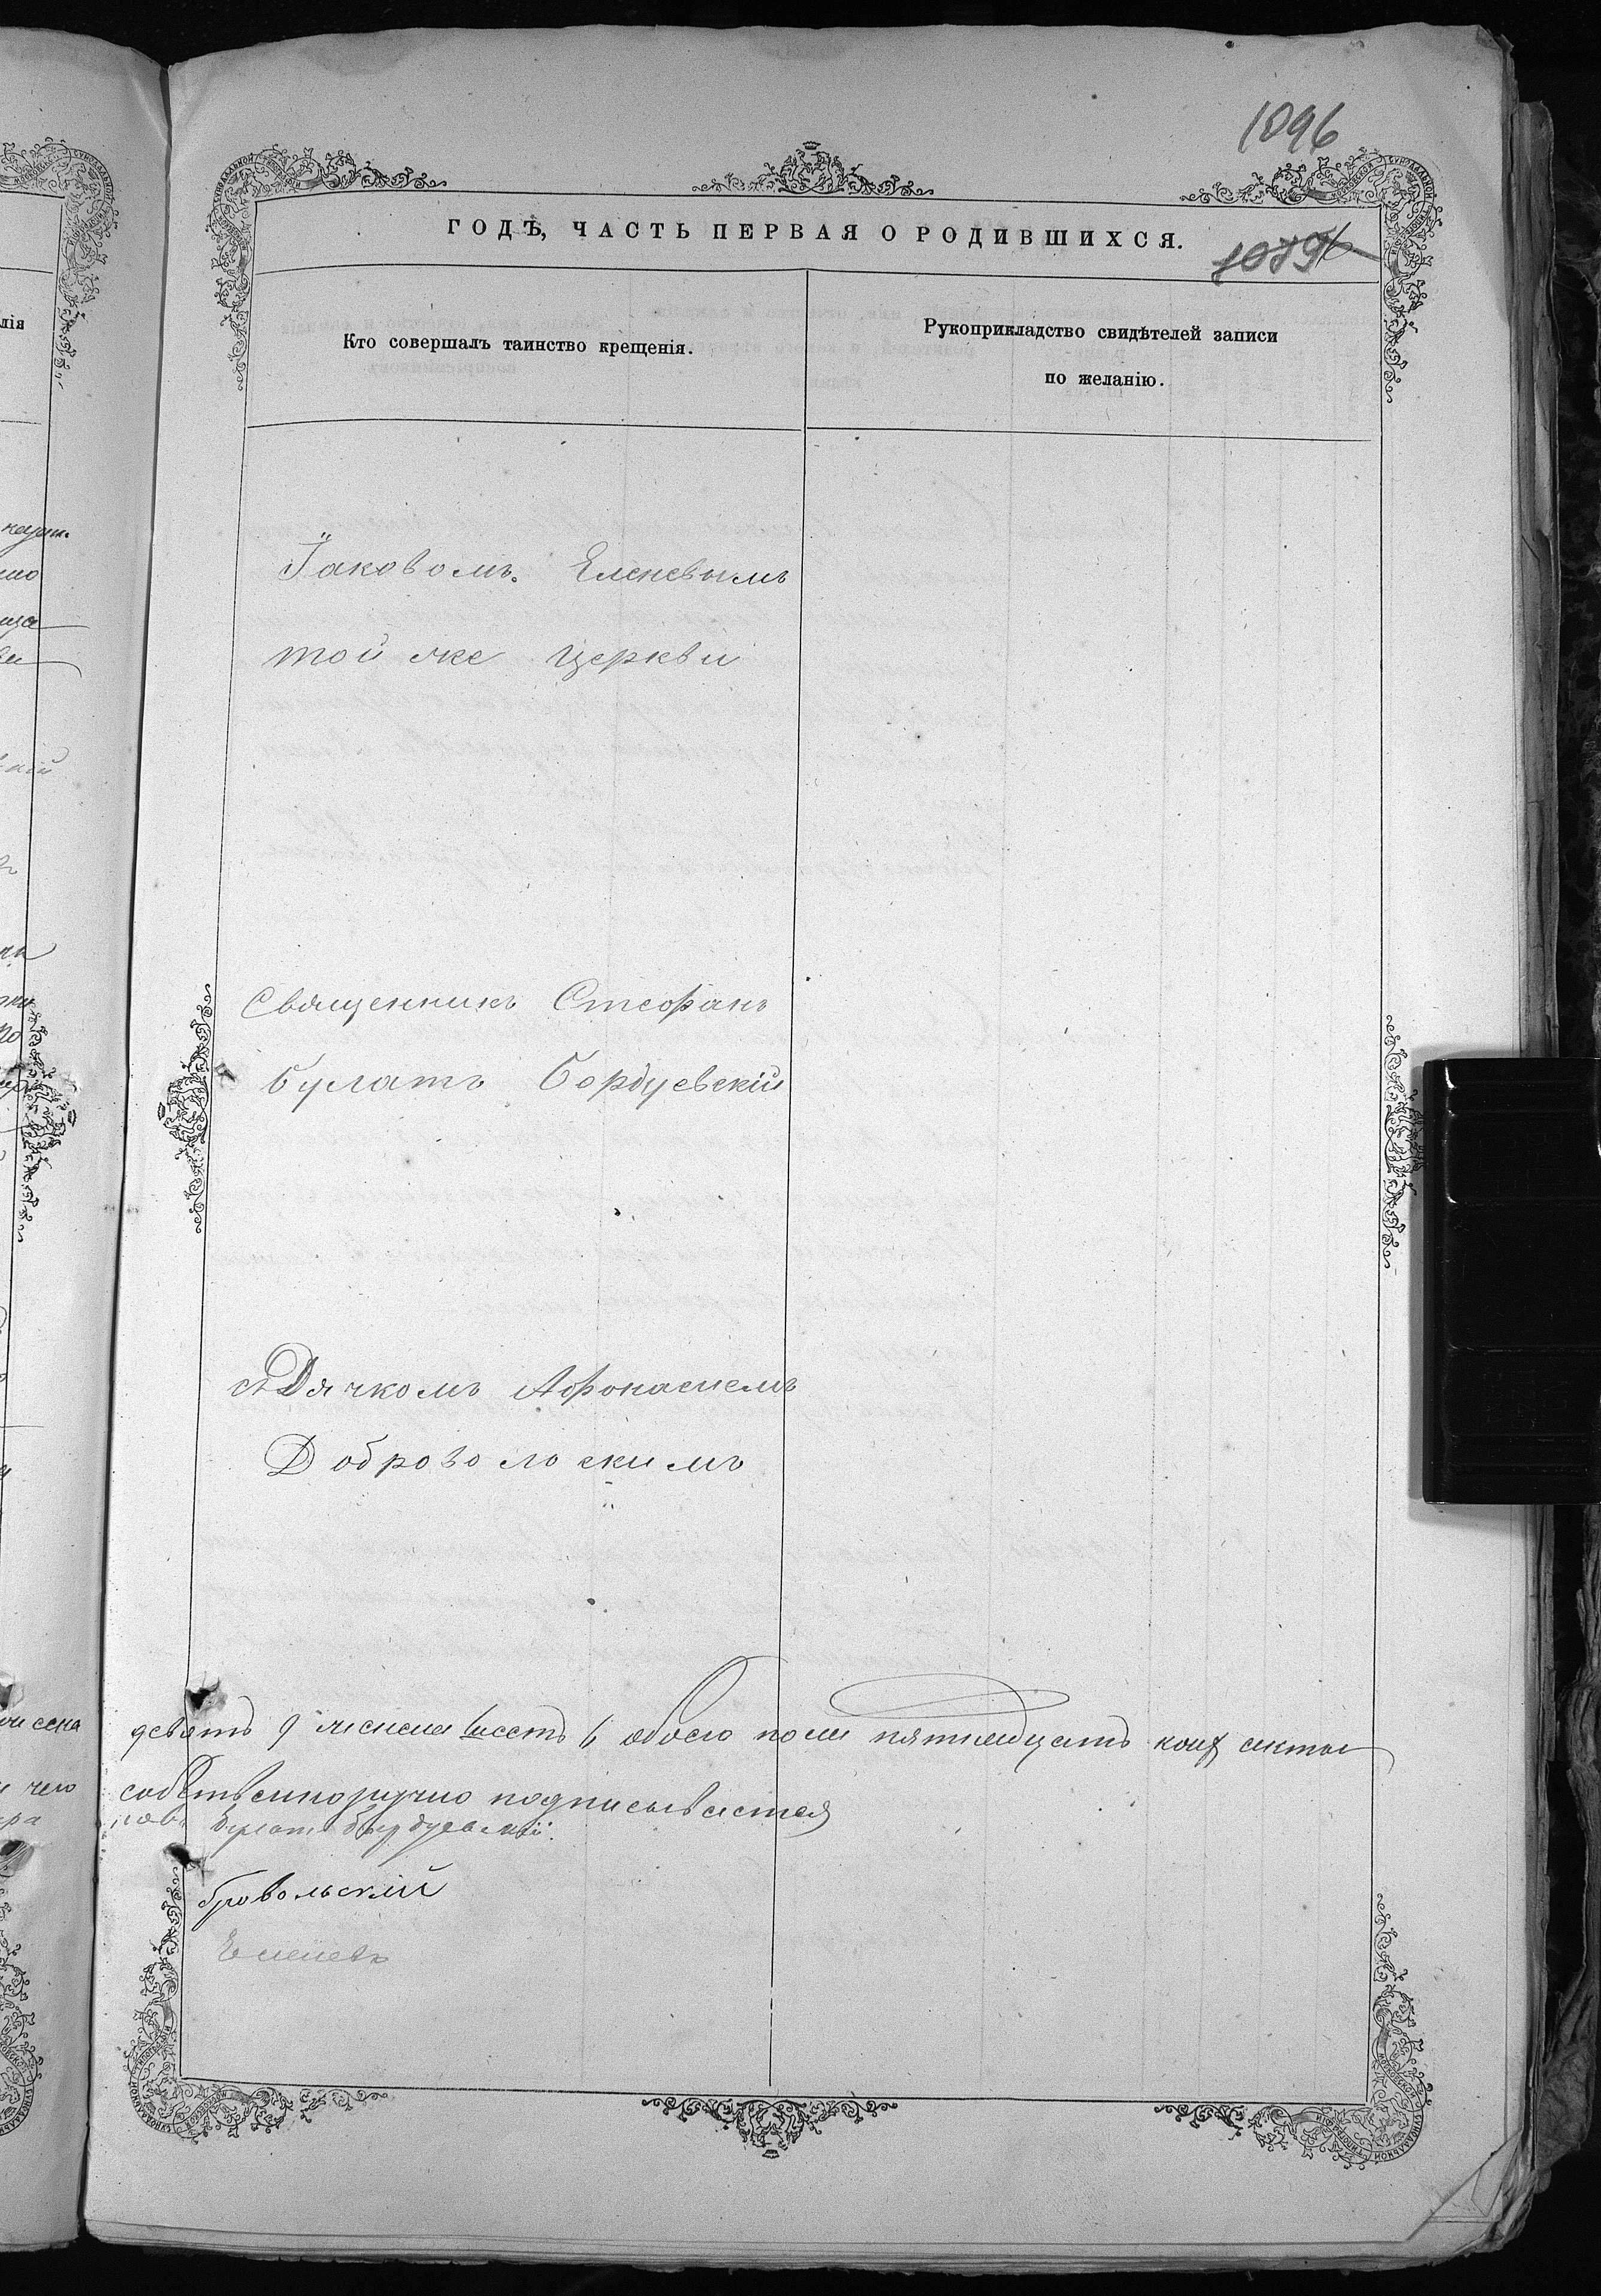 1096
ГОДЪ, ЧАСТЬ ПЕРВАЯ О РОДИВШИХСЯ.
1089
Кто совершалъ таинство крещенія.
Рукоприкладство свидѣтелей записи
по желанію.
Іаковомъ Еленевымъ
той же церкви
Священникъ Стефанъ
Булатъ Бордуевскій
съ Дячкомъ Афонасиемъ
Добровольскимъ
девять 9 женска шесть 6 обоего пола пятнадцать
собственоручно подписывается
Булатъ Бордуевскій
бровольскій
Еленевъ